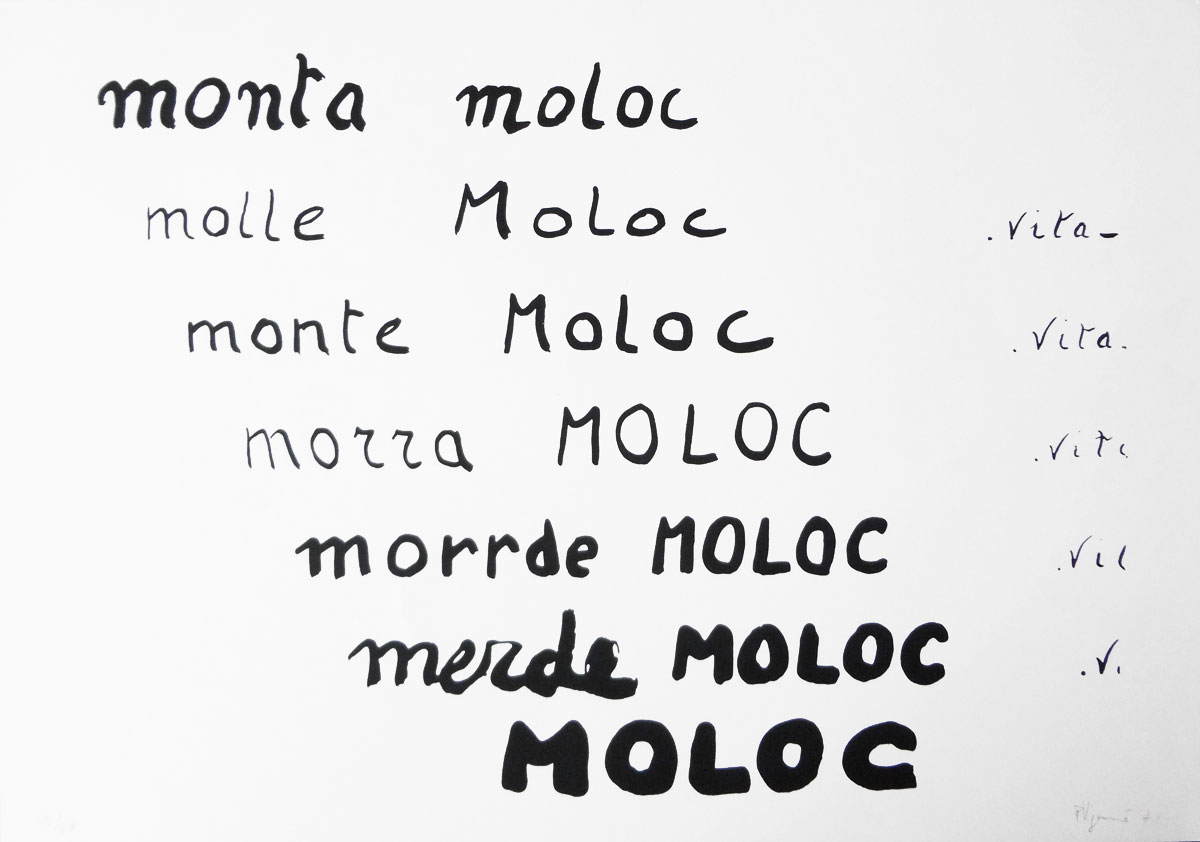 monta moloc
molle Moloc .vita-
monte Moloc .vita.
morra MOLOC .vit
morrde MOLOC .vil
merde MOLOC .v.
MOLOC